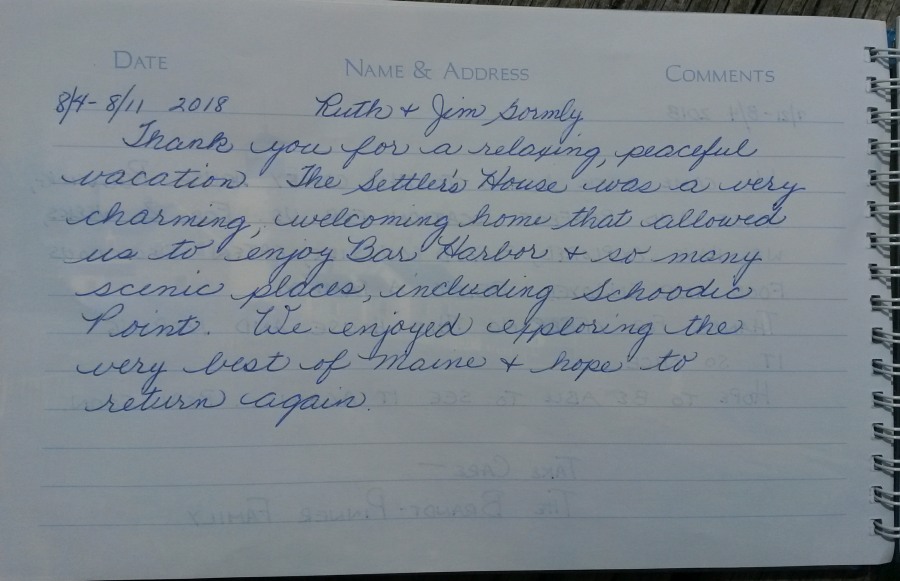 DATE NAME & ADDRESS COMMENTS
8/4 - 8/11 2018 Ruth + Jim Gormly
Thank you for a relaxing, peaceful
vacation. The Settler's House was a very
charming, welcoming home that allowed
us to enjoy Bar Harbor + so many
scenic places, including Schoodic
Point. We enjoyed exploring the
very best of Maine + hope to
return again.
TAKE CARE